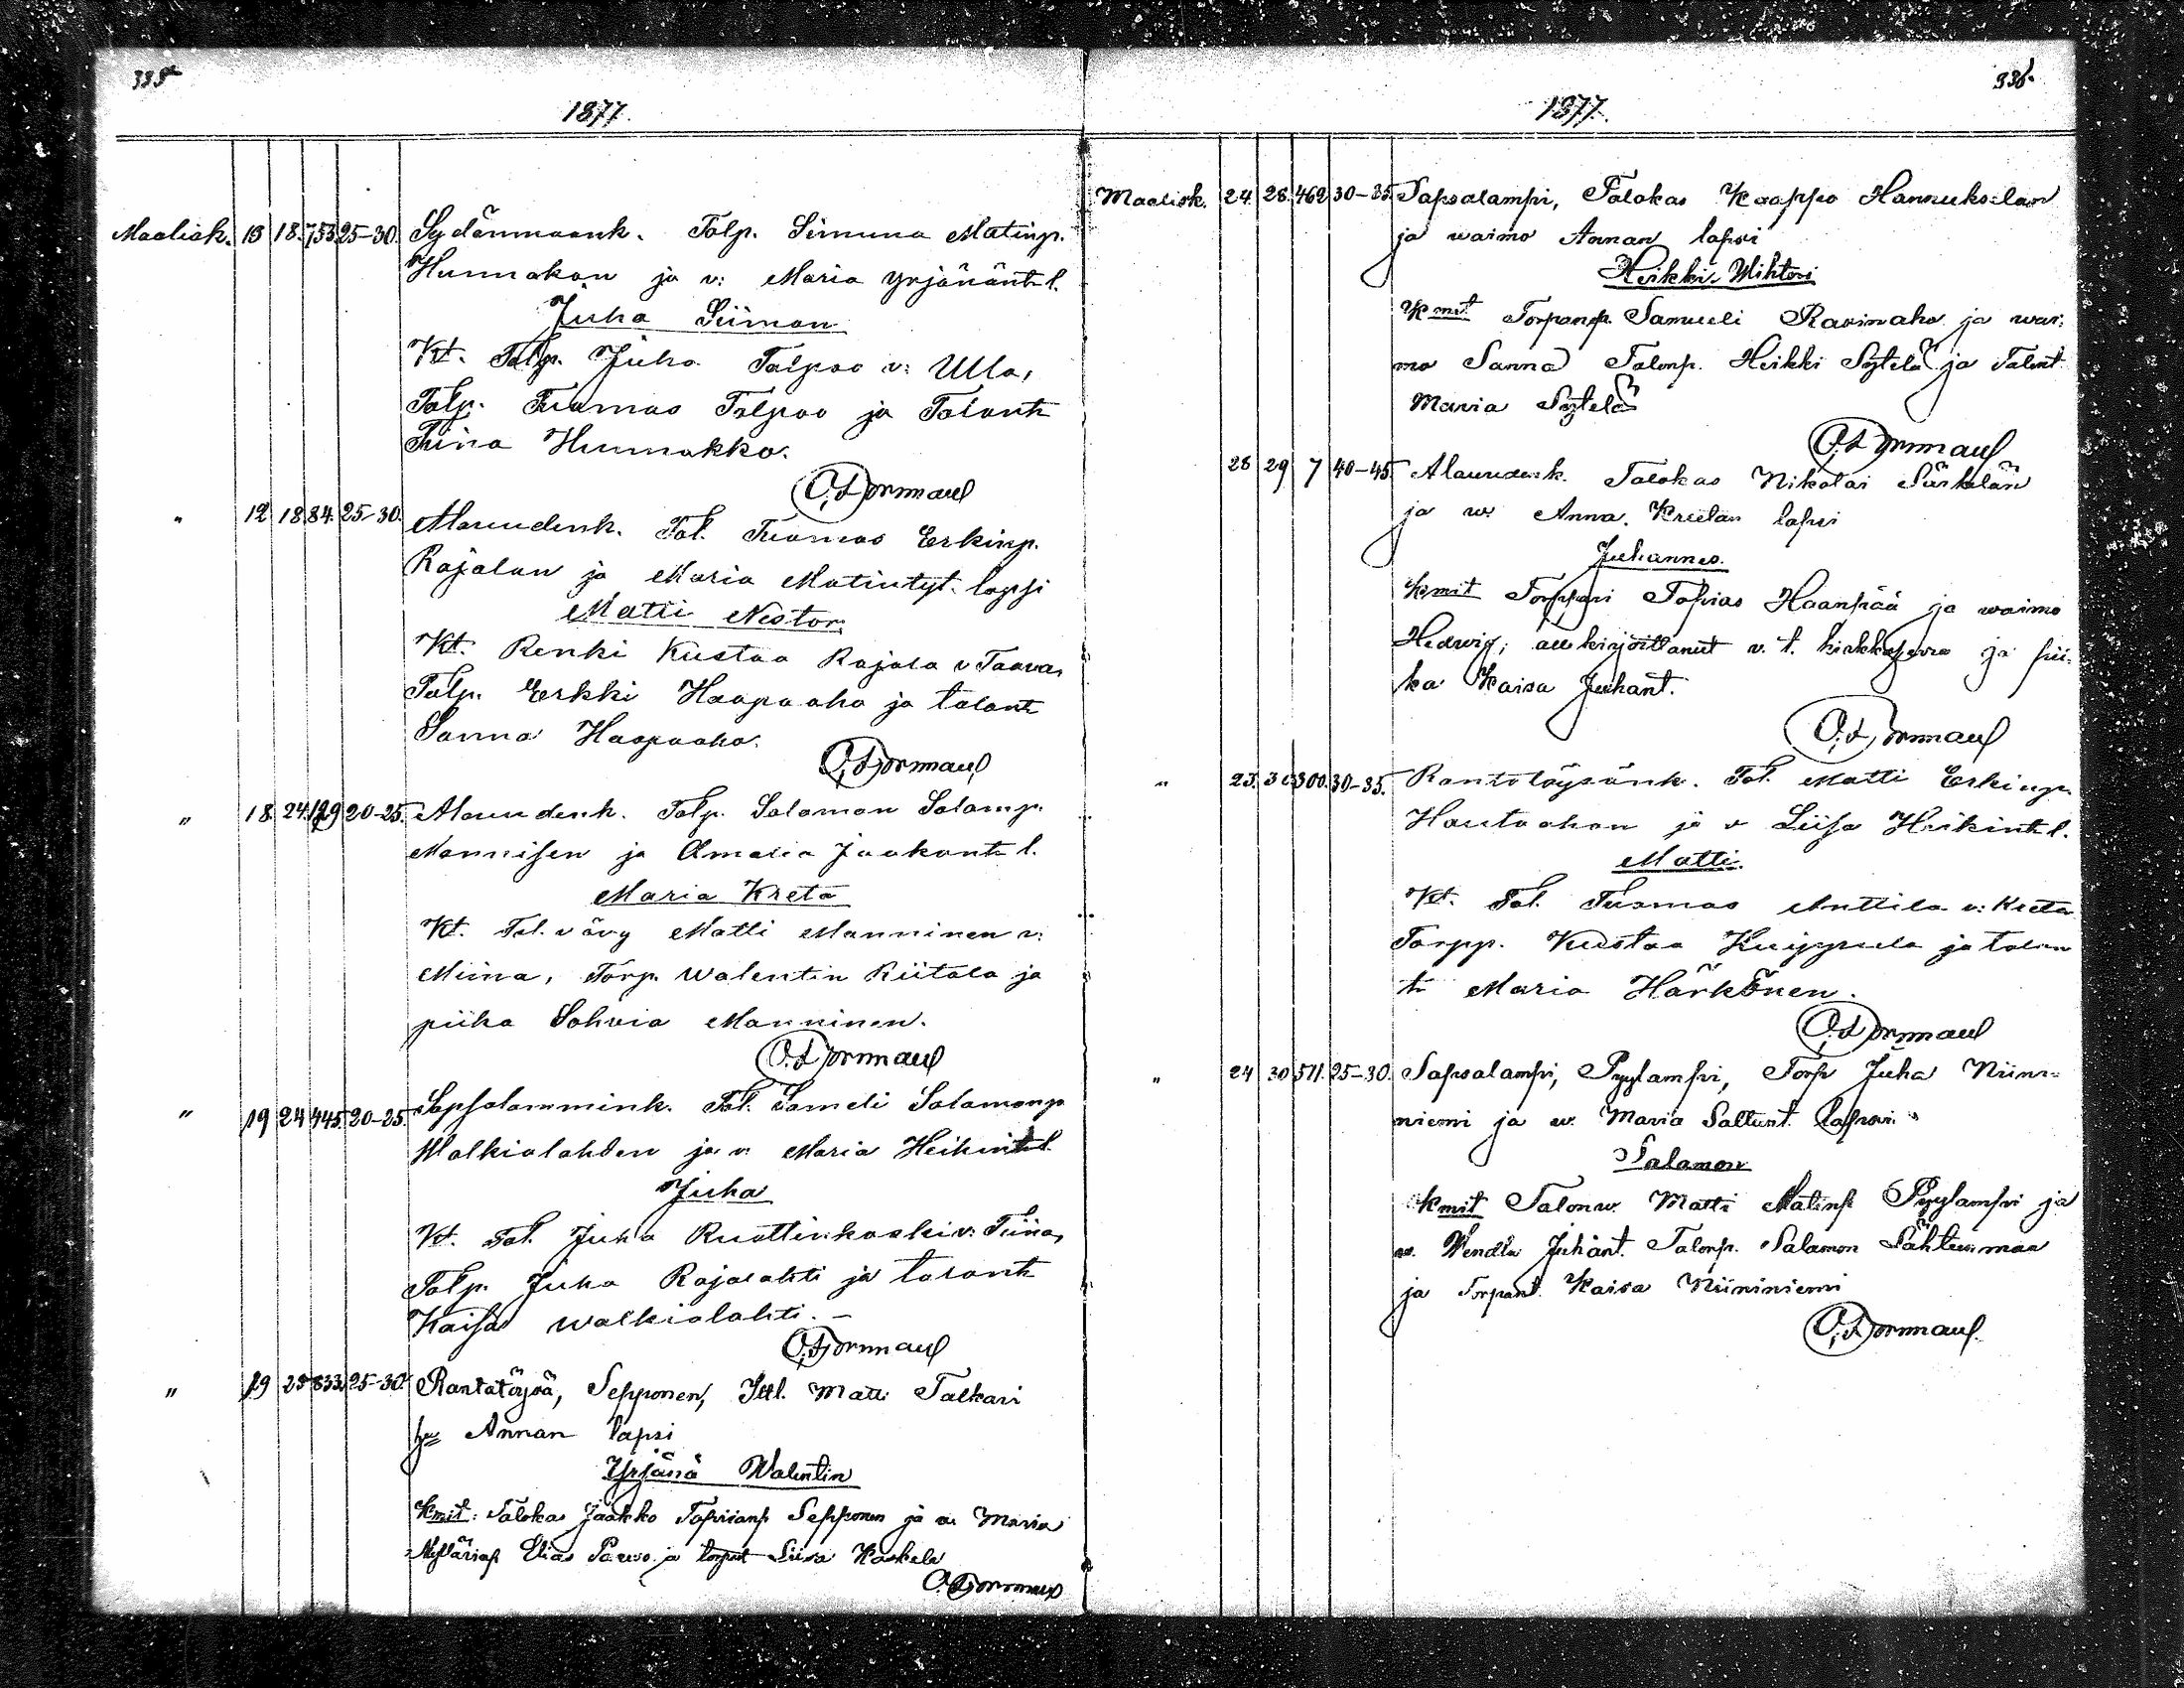 335
1877.
Maalisk. 13 18. 753 25-30. Sydänmaank. Talp. Simuna Matinp.
Hunnakon ja v: Maria Yrjänänt l.
Juha Siimon
Kt. Talp. Juha Talpoo v: Ulla,
Talp. Tuomas Talpoo ja Talont
Tiina Hunnakko.
O. Dormaul
" 12 18 84. 25-30. Alauudenk. Tal. Tuomas Erkinp.
Rajalan ja Maria Matintyt. lapsi
Matti Nestor
Kt. Renki Kustaa Rajala v Taava,
Talp. Erkki Haapaaho ja talont
Sanna Haapaaho.
O. Dormaul
" 18 24. 129 20-25. Alauudenk. Talp. Salamon Salamp.
Mannisen ja Amalia Jaakont l.
Maria Kreta
Kt. Tal. vävy Matti Manninen v:
Miina, Torp. Walentin Riitala ja
piika Sohvia Manninen.
O. Dormaul
" 19 24 445. 20-25. Sapsalammink. Tal. Sameli Salamonp
Walkialahden ja v: Maria Heikintl.
Juha
Kt. Tal. Juha Ruottinkoski v: Tiina,
Talp. Juha Rajalahti ja talont
Kaisa Walkialahti. —
O. Dormaul
" 19 25 833. 25-30. Rantatöysä, Sepponen, Itl. Matti Talkari
ja Annan lapsi
Yrjänä Walentin
Kmit: Talokas Jaakko Topiianp Sepponen ja v. Maria
Mylläriap Elias Paavo ja torpat Liisa Koskela
O. Dormaul
336.
1877.
Maalisk. 24. 28. 462 30-35. Sapsalampi, Talokas Kaappo Hannukselan
ja waimo Annan lapsi
Heikki Wihtori
Kmit Torpanp. Samueli Rasinaho ja wai-
mo Sanna Talonp. Heikki Sytelä ja Talont.
Maria Sytelä
O. Dormaul
28 29 7 40-45. Alauudenk. Talokas Nikolai Särkelän
ja w. Anna Kreetan lapsi
Juhannes.
Kmit Torppari Topias Haanpää ja waimo
Hedwig; allekirjoittanut v. t. kirkkoherra ja pii-
ka Kaisa Juhant.
O. Dormaul
" 23. 30 300. 30-35. Rantatöysänk. Tal. Matti Erkinp.
Hautaahon ja v Liisa Heikint l.
Matti.
Kt. Tal. Tuomas Anttila v: Kreeta
Torpp. Kustaa Kuippula ja talon
t: Maria Härkönen.
O. Dormaul
" 24 30 511. 25-30. Sapsalampi, Pyylampi, Torp Juha Niini-
niemi ja w. Maria Sallunt. lapsi
Salamon
Kmit Talonw. Matti Matinp Pyylampi ja
w. Wendla Juhant. Talonp. Salamon Lahtinmaa
ja Torpant. Kaisa Niininiemi
O. Dormaul.